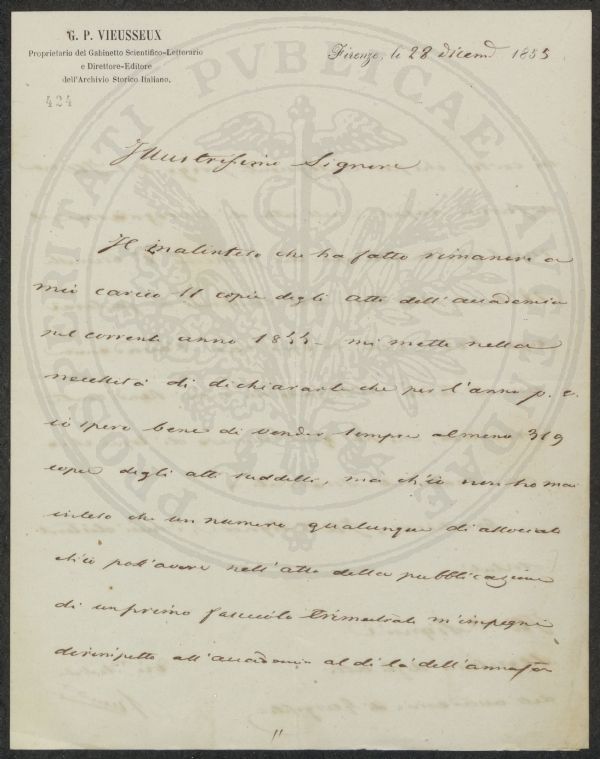 G. P. VIEUSSEUX
Proprietario del Gabinetto Scientifico-Letterario
e Direttore-Editore
dell'Archivio Storico Italiano.
424
Firenze, li 28 dicemb 1855
PROSPERITATI PVBLICAE AVGENDAE
Illustrissimo Signore
Il malinteso che ha fatto rimanere a
mio carico 11 copie degli atti dell'accademia
nel corrente anno 1855 - mi mette nella
necessità di dichiararle che per l'anno p. v.
io spero bene di vender sempre almeno
copie degli atti suddetti, ma ch'io non ho mai
inteso che un numero qualunque di associati
ch'io poss'avere nell'atto della pubblicazione
di un primo fascicolo trimestrale m'impegni
dirimpetto all'accademia al di là dell'
11